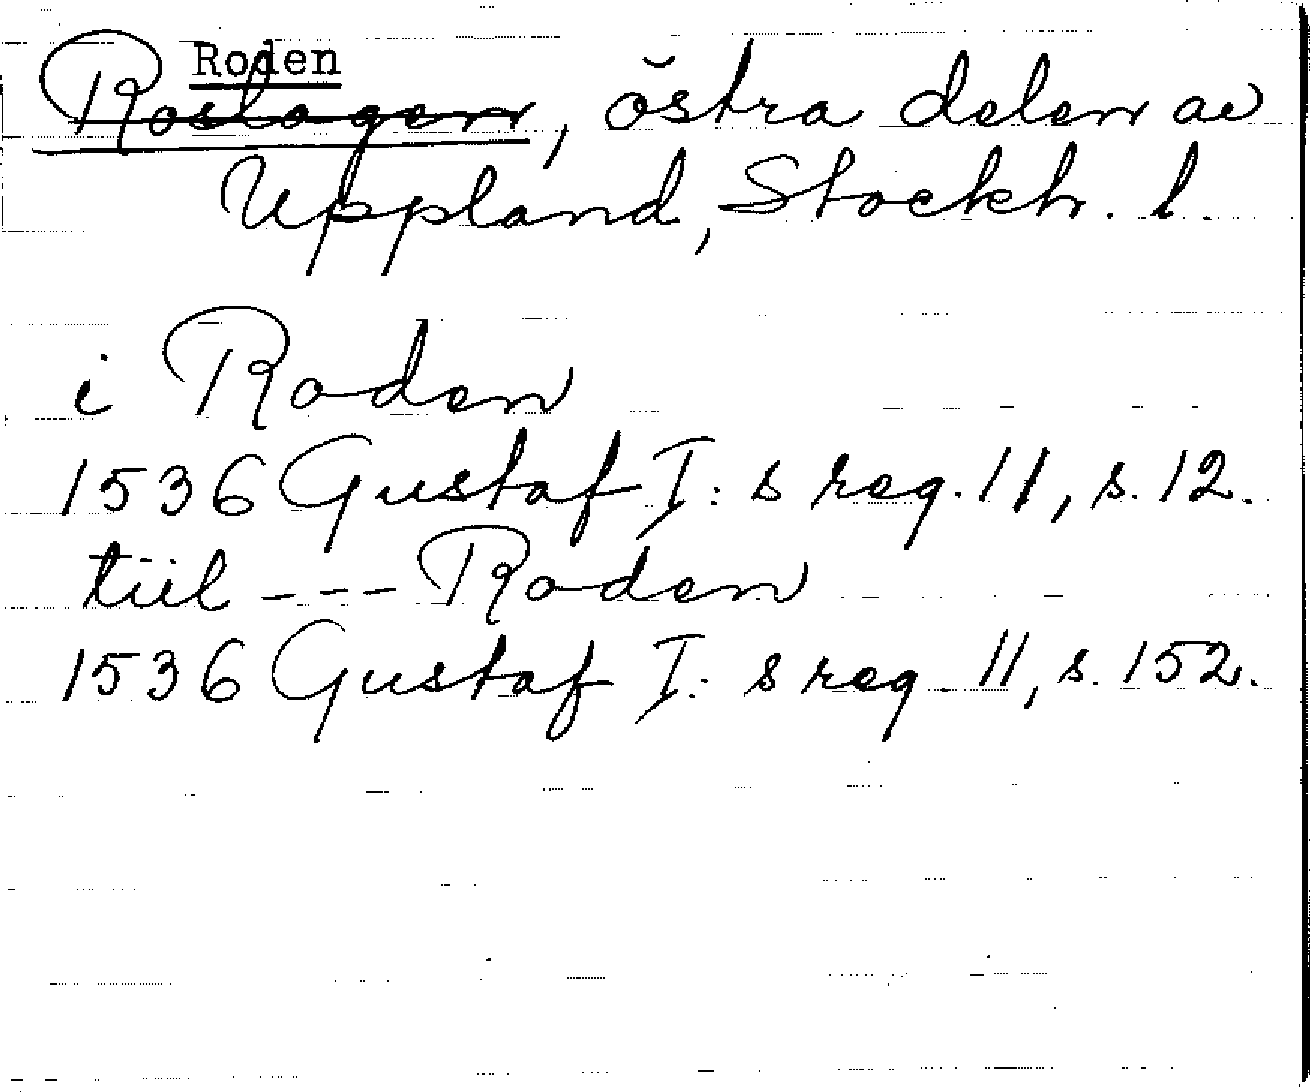 Roden
Roslagen, östra delen av
Uppland, Stockh. l.
i Roden
1536 Gustaf I:s reg. 11, s. 12.
tiil --- Roden
1536 Gustaf I:s reg. 11, s. 152.